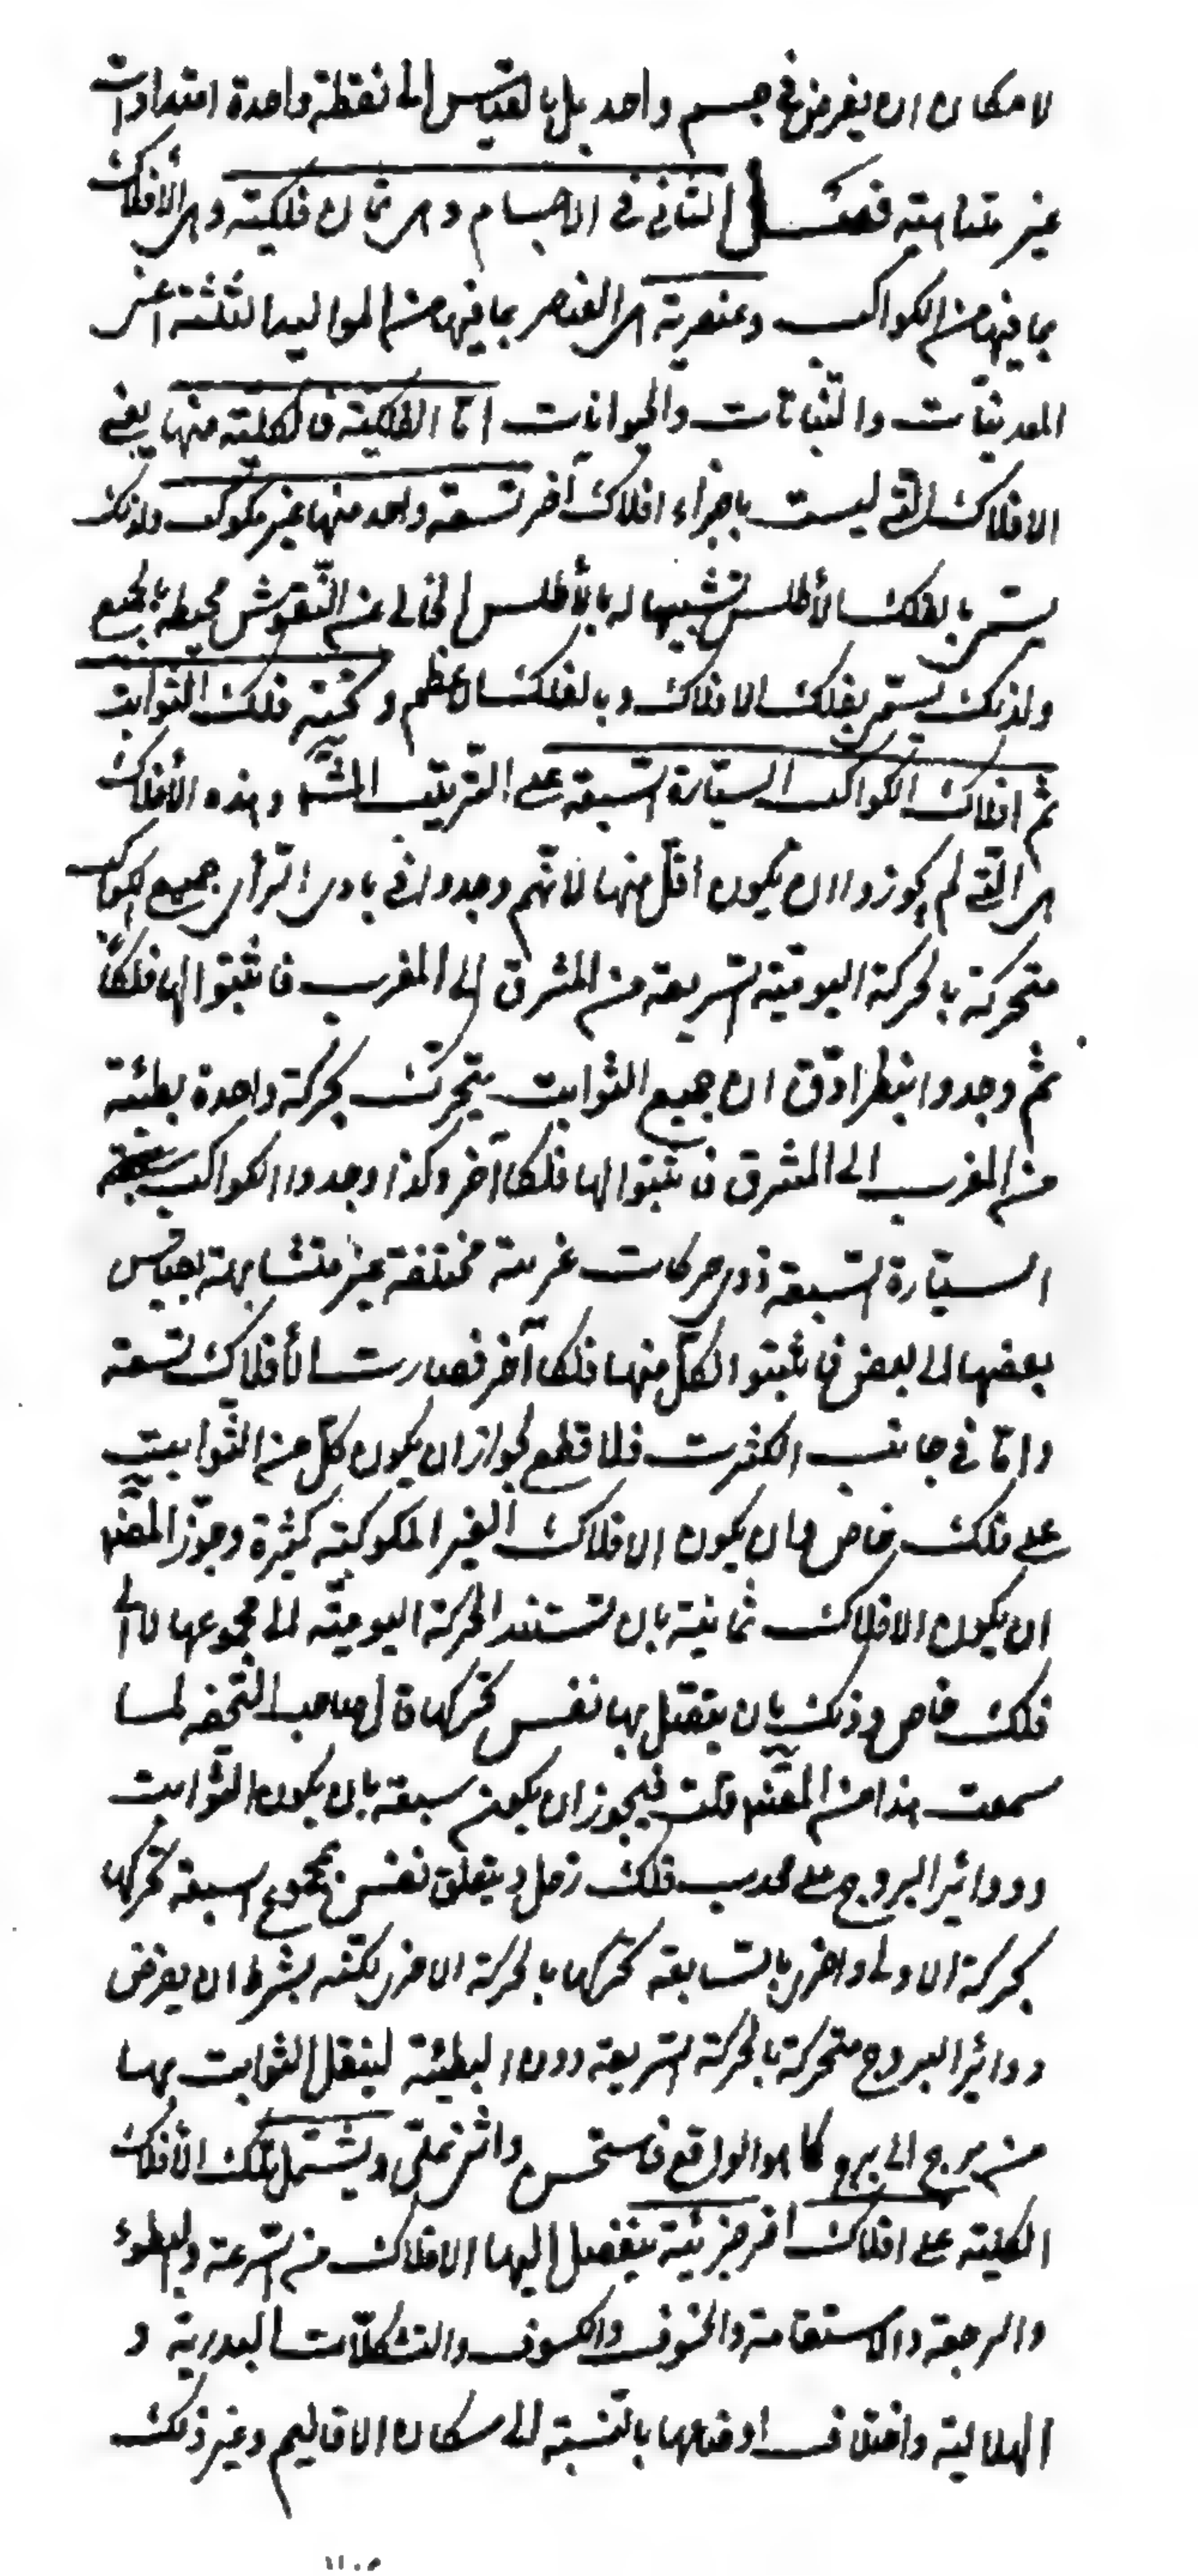 لامكان ان يفرض في جسم واحد بل بالقياس الى نقطة واحدة امتدادات
غير متناهية فصل الثاني في الاجسام وهي ثمان فلكية وهي الأفلاك
بما فيها من الكواكب وعنصرية هي العناصر بما فيها من المواليد الثلثة اعني
المعدنيّات والنّباتات والحيوانات امّا الفلكية فالكلية منها يعني
الافلاك الّتي ليست باجزاء افلاك آخر تسعة واحد منها غير مكوكب ولذلك
يسمّى بالفلك الأطلس تشبيها له بالأطلس الخالي عن النّقوش محيطة بالجميع
ولذلك يسمّى بفلك الافلاك وبالفلك الاعظم وتحته فلك الثوابت
ثم افلاك الكواكب السيّارة السّبعة على الترتيب المشهور وهذه الأفلاك
هي الّتي لم يجوزوا ان يكون اقلّ منها لانّهم وجدوا في بادى الرّأى جميع الكواكب
متحركة بالحركة اليوميّة السّريعة من المشرق الى المغرب فاثبتوا لها فلكاً
ثم وجدوا بنظر ادقّ ان جميع الثوابت يتحرّك بحركة واحدة بطيئة
من المغرب الى المشرق فاثبتوا لها فلكا آخر وكذا وجدوا الكواكب
السيّارة السّبعة ذوى حركات غريبة مختلفة غير متشابهة بقياس
بعضها الى بعض فاثبتوا لكلّ منها فلكا آخر فصارت الأفلاك تسعة
وامّا في جانب الكثرت فلا قطع لجواز ان يكون كلّ من الثّوابت
على فلك خاص وان يكون الافلاك الغير المكوكبة كثيرة وجوّز المصنّف
ان يكون الافلاك ثمانية بان تستند الحركة اليوميّة الى مجموعها لا الى
فلك خاص وذلك بان يتصل بها نفس تحركها قال صاحب التّحفه لما
سمعت هذا من المصنّف قلت فيجوز ان يكون سبعة بان يكون الثّوابت
ودوائر البروج على محدب فلك زحل ويتعلق نفس بمجموع السبعة تحركها
بحركة الاولى واخرى بالسّابعة تحرّكها بالحركة الاخرى لكنّه بشرط ان يفرض
دوائر البروج متحركة بالحركة السّريعة دون البطيئة لينتقل الثوابت بها
من برج الى برج كما هو الواقع فاستحسن واثنى علىّ ويشتمل تلك الأفلاك
الكلية على افلاك اخر جزئية ينفصل اليها الافلاك من السّرعة والبطوء
والرجعة والاستقامة والخسوف والكسوف والتشكلّات البدرية و
الهلالية واختلاف اوضاعها بالنّسبة الى سكان الاقاليم وغير ذلك